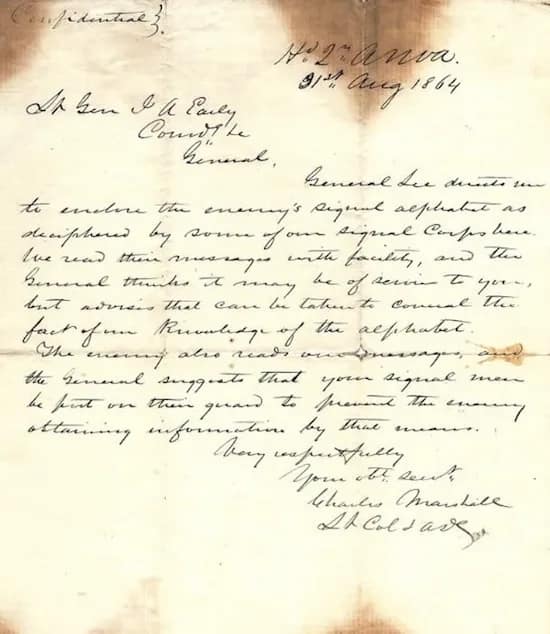 Confidential
Hd Qrs ANVa.
31st Aug 1864
Lt Gen J A Early
Comdg &c
General,
General Lee directs me
to enclose the enemy's signal alphabet as
deciphered by some of our signal Corps here.
We read their messages with facility, and the
General thinks it may be of service to you,
but advises that care be taken to conceal the
fact of our knowledge of the alphabet.
The enemy also reads our messages, and
the General suggests that your signal men
be put on their guard to prevent the enemy
obtaining information by that means.
Very respectfully
Your obt. servt.
Charles Marshall
Lt Col & ADC